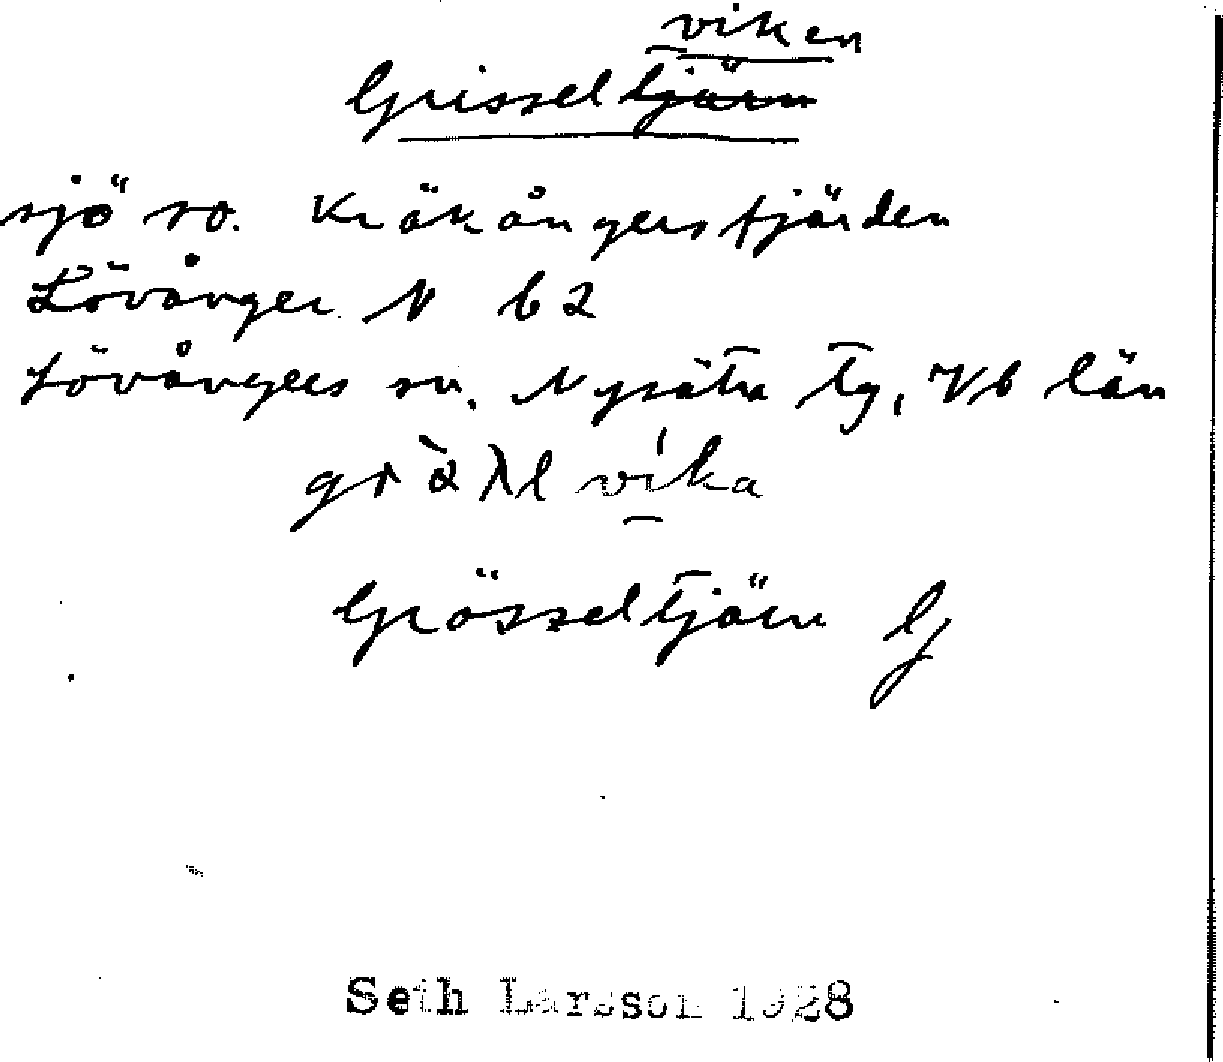 viken
Grissel tjärn
sjö so. Kräkångersfjärden
Lövånger N b2
Lövångers sn. Nysätra tg, Vb län
vika
Grösseltjärn G
Seth Larsson 1928